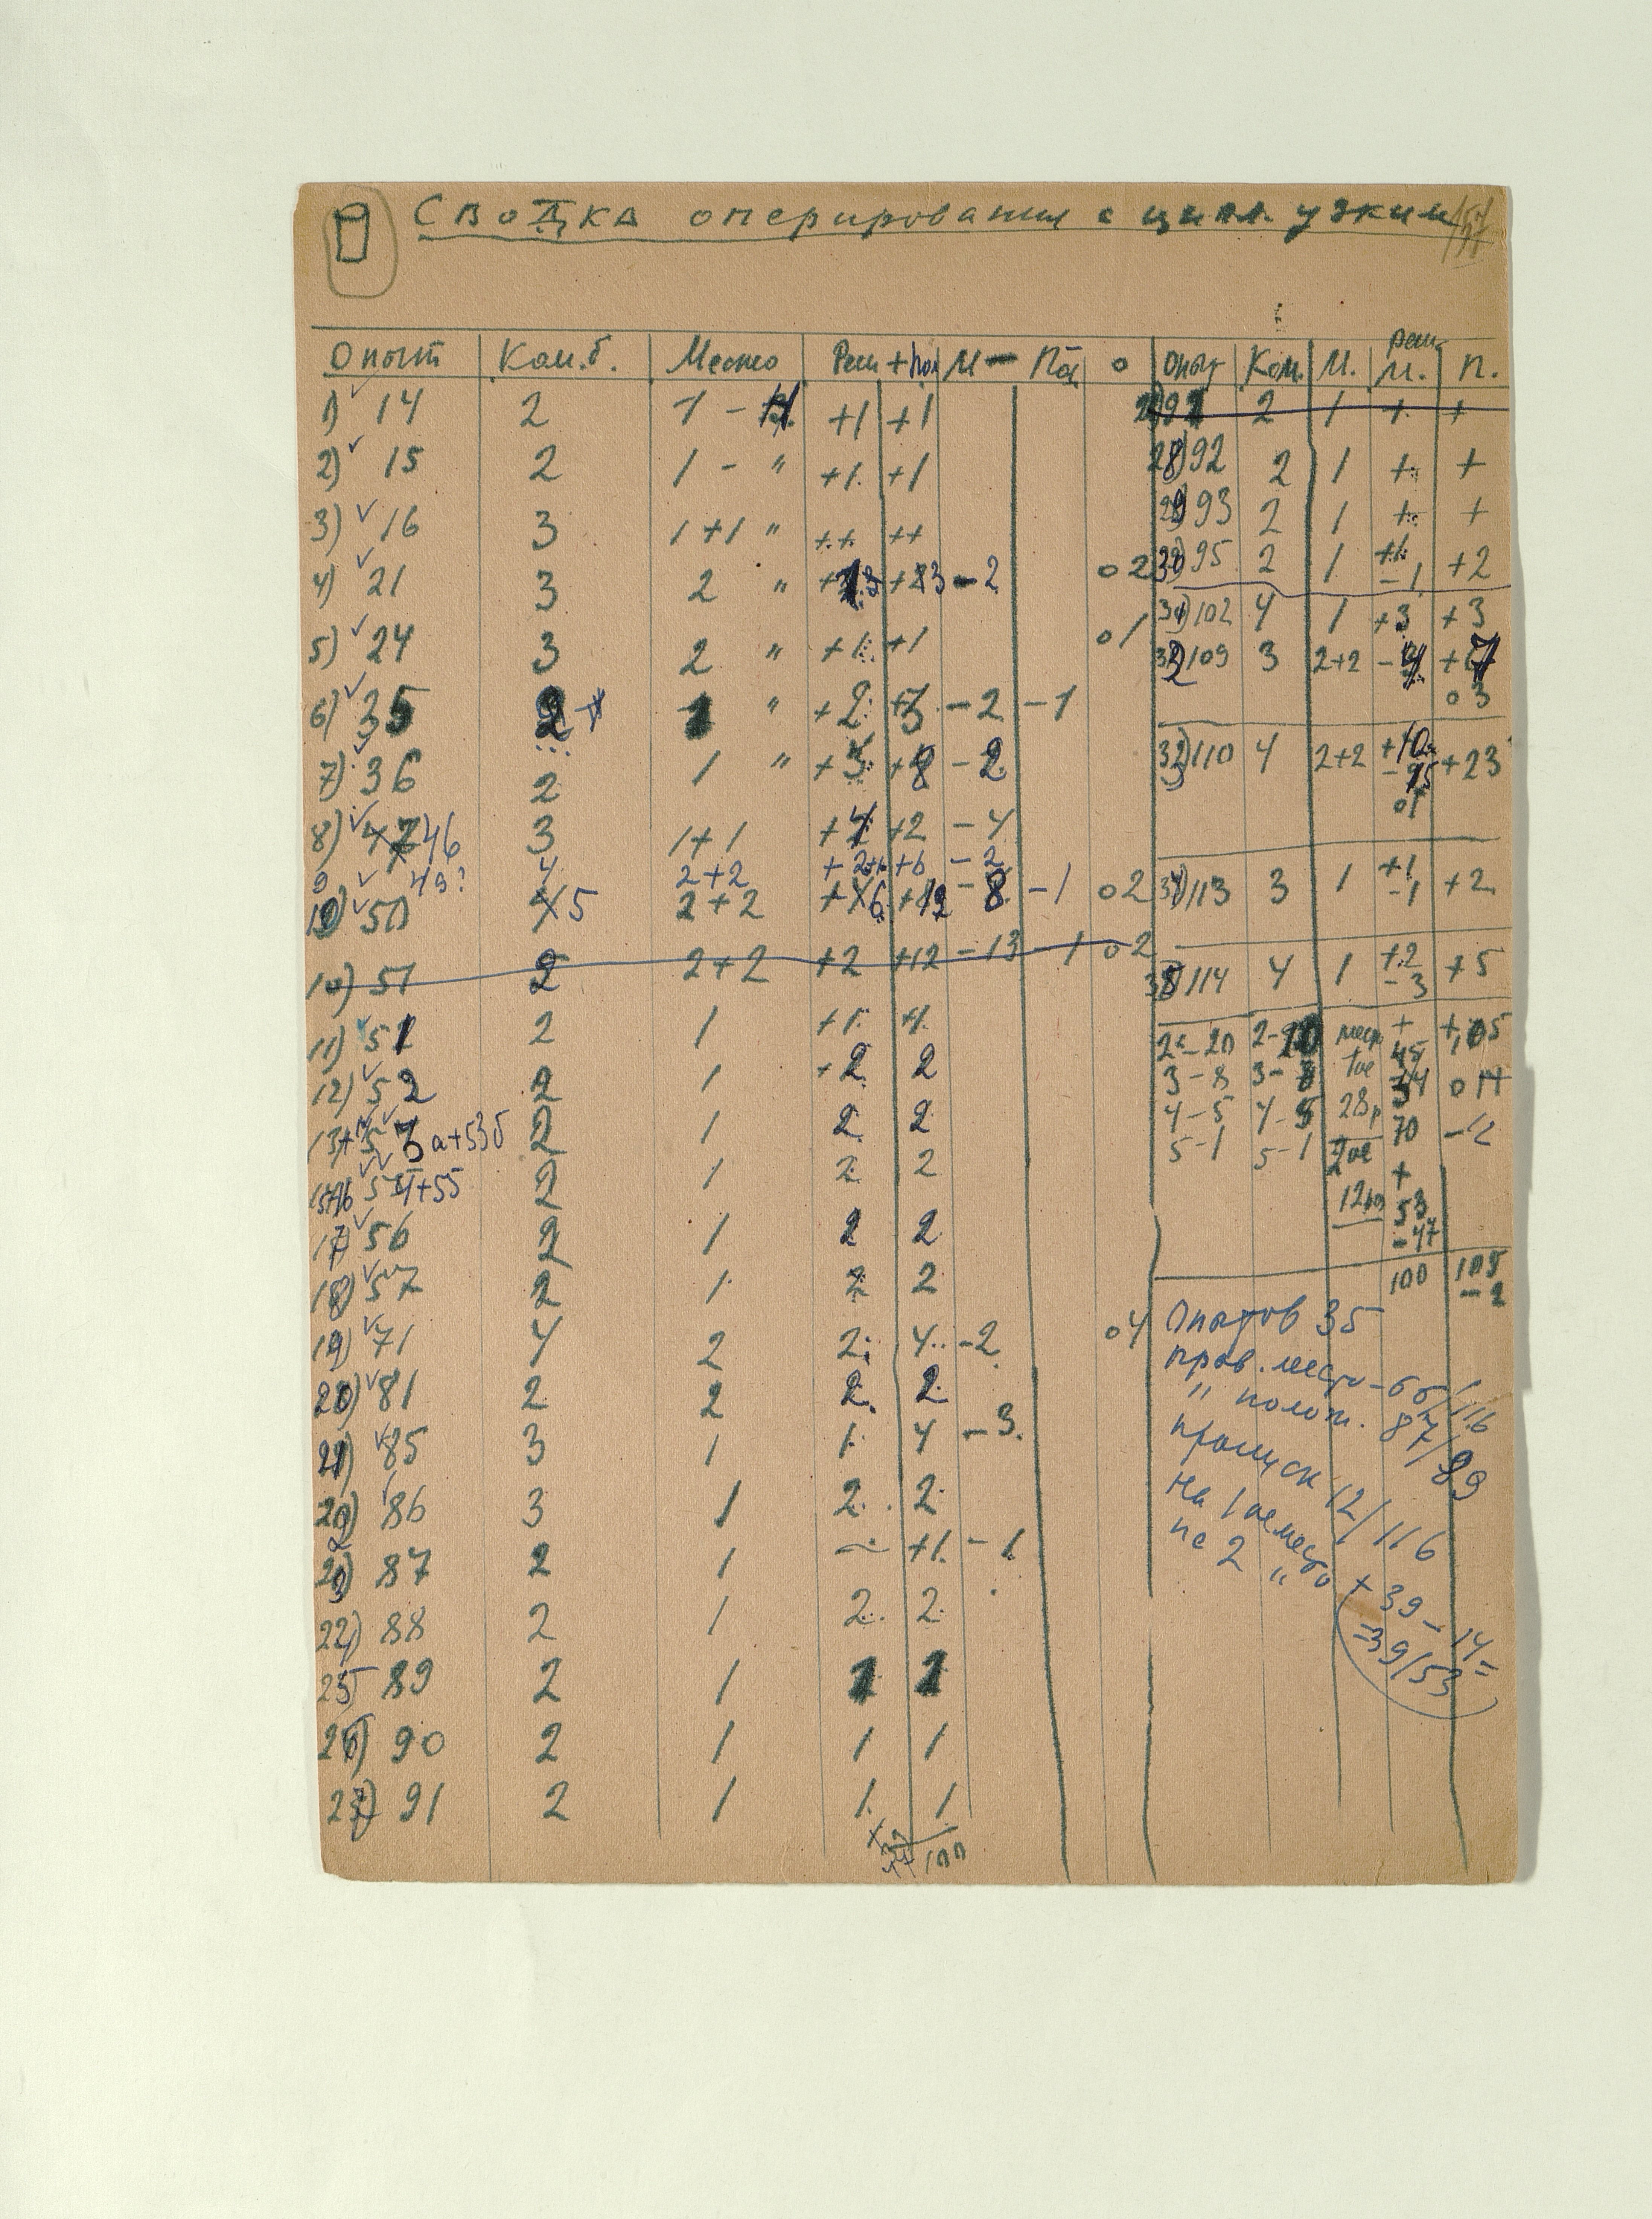 Сводка оперирования с цил. узким
Опыт Комб. Место Реш + пол М — Пол 0
1) 14 2 1 - +1 +1
2) 15 2 1 - " +1 +1
3) 16 3 1+1 " ++ ++
4) 21 3 2 " -2 0 2
5) 24 3 2 " +1 +1 0 1
6) 35 2 1 " +2 +3 -2 -1
7) 36 2 1 " +3 +8 -2
8) 46 3 1+1 +4 +2 -4
9 49? 4 2+2 +6 -2
10) 50 5 2+2 +12 -8 -1 0 2
10) 51 2 2+2 +2 +12 -13 -1 0 2
11) 51 2 1 +1 +1
12) 52 2 1 +2 2
53а+53б 2 1 2 2
54+55 2 1 2 2
17) 56 2 1 2 2
18) 57 2 1 2 2
19) 71 4 2 2 4 -2 0 4
20) 81 2 2 2 2
21) 85 3 1 1 4 -3
22) 86 3 1 2 2
23) 87 2 1 — +1 -1
88 2 1 2 2
25 89 2 1 1 1
26) 90 2 1 1 1
27) 91 2 1 1 1
100
Опыт Ком. М. реш М. П.
2 1 + +
28) 92 2 1 + +
29) 93 2 1 + +
30) 95 2 1 +1 -1 +2
31) 102 4 1 +3 +3
32) 109 3 2+2 +7
0 3
33) 110 4 2+2 +10 -15 +23
01
34) 113 3 1 +1 -1 +2
35) 114 4 1 +2 -3 +5
2-20 2-20 +
3-8 3-8 1ое 0 14
4-5 4-5 28 70 -12
5-1 5-1 2ое +
53
-47
100 105
-2
Опытов 35
прав. место - 65/116
" полож. 87/89
пропуск 12/116
на 1ое место
на 2 " + 39 - 14 =
=39/53